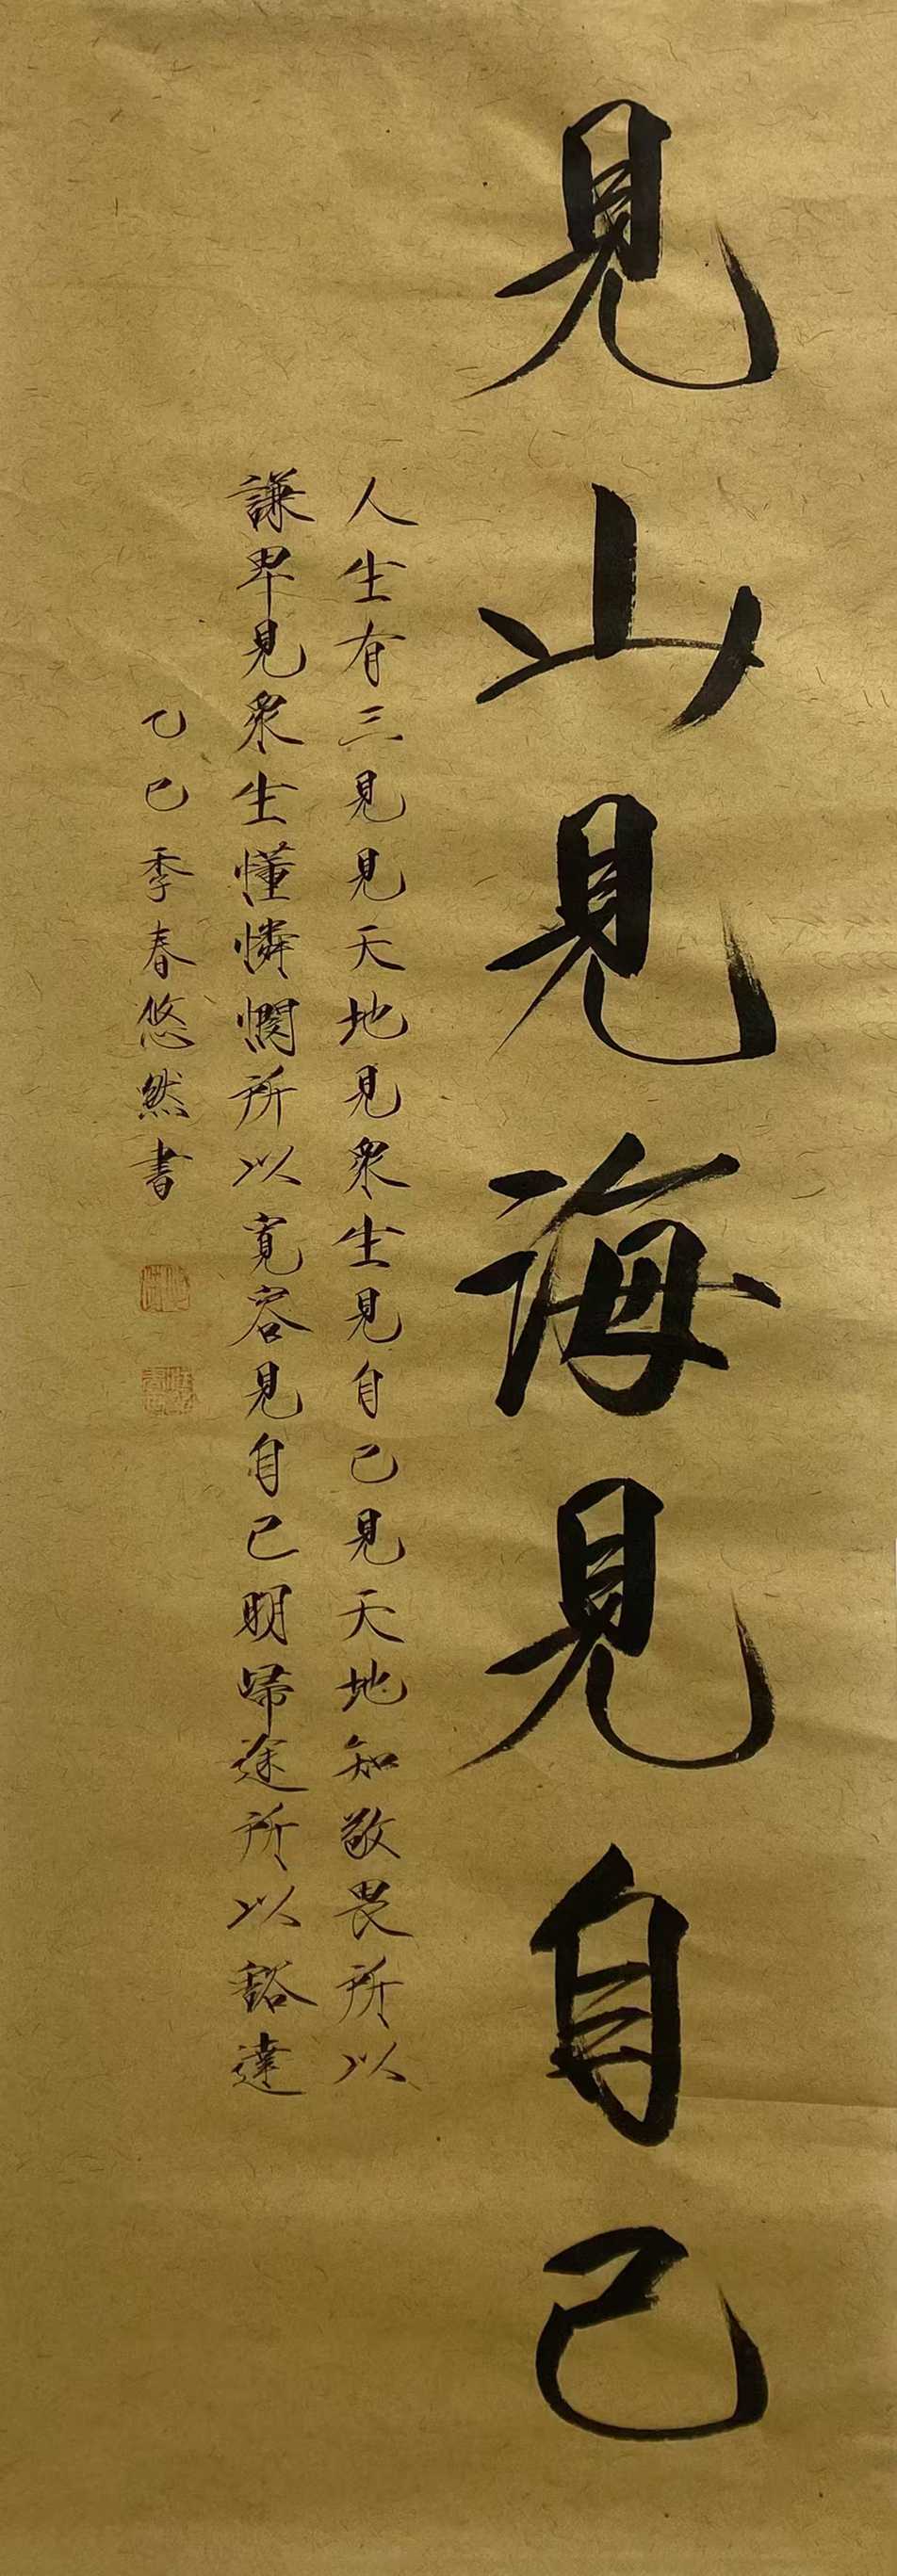 見山見海見自己
人生有三見見天地見眾生見自己見天地知敬畏所以
謙卑見眾生懂憐憫所以寬容見自己明歸途所以豁達
乙巳季春悠然書